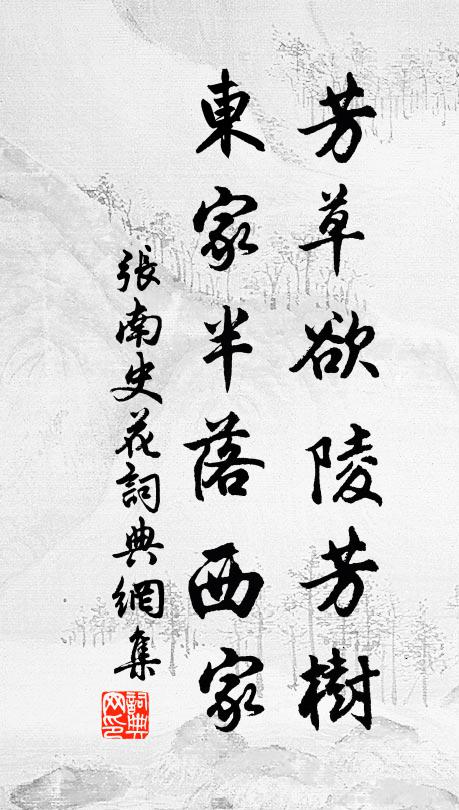 芳草欲陵芳樹
東家半落西家
張南史花詞典網集
詞典網印